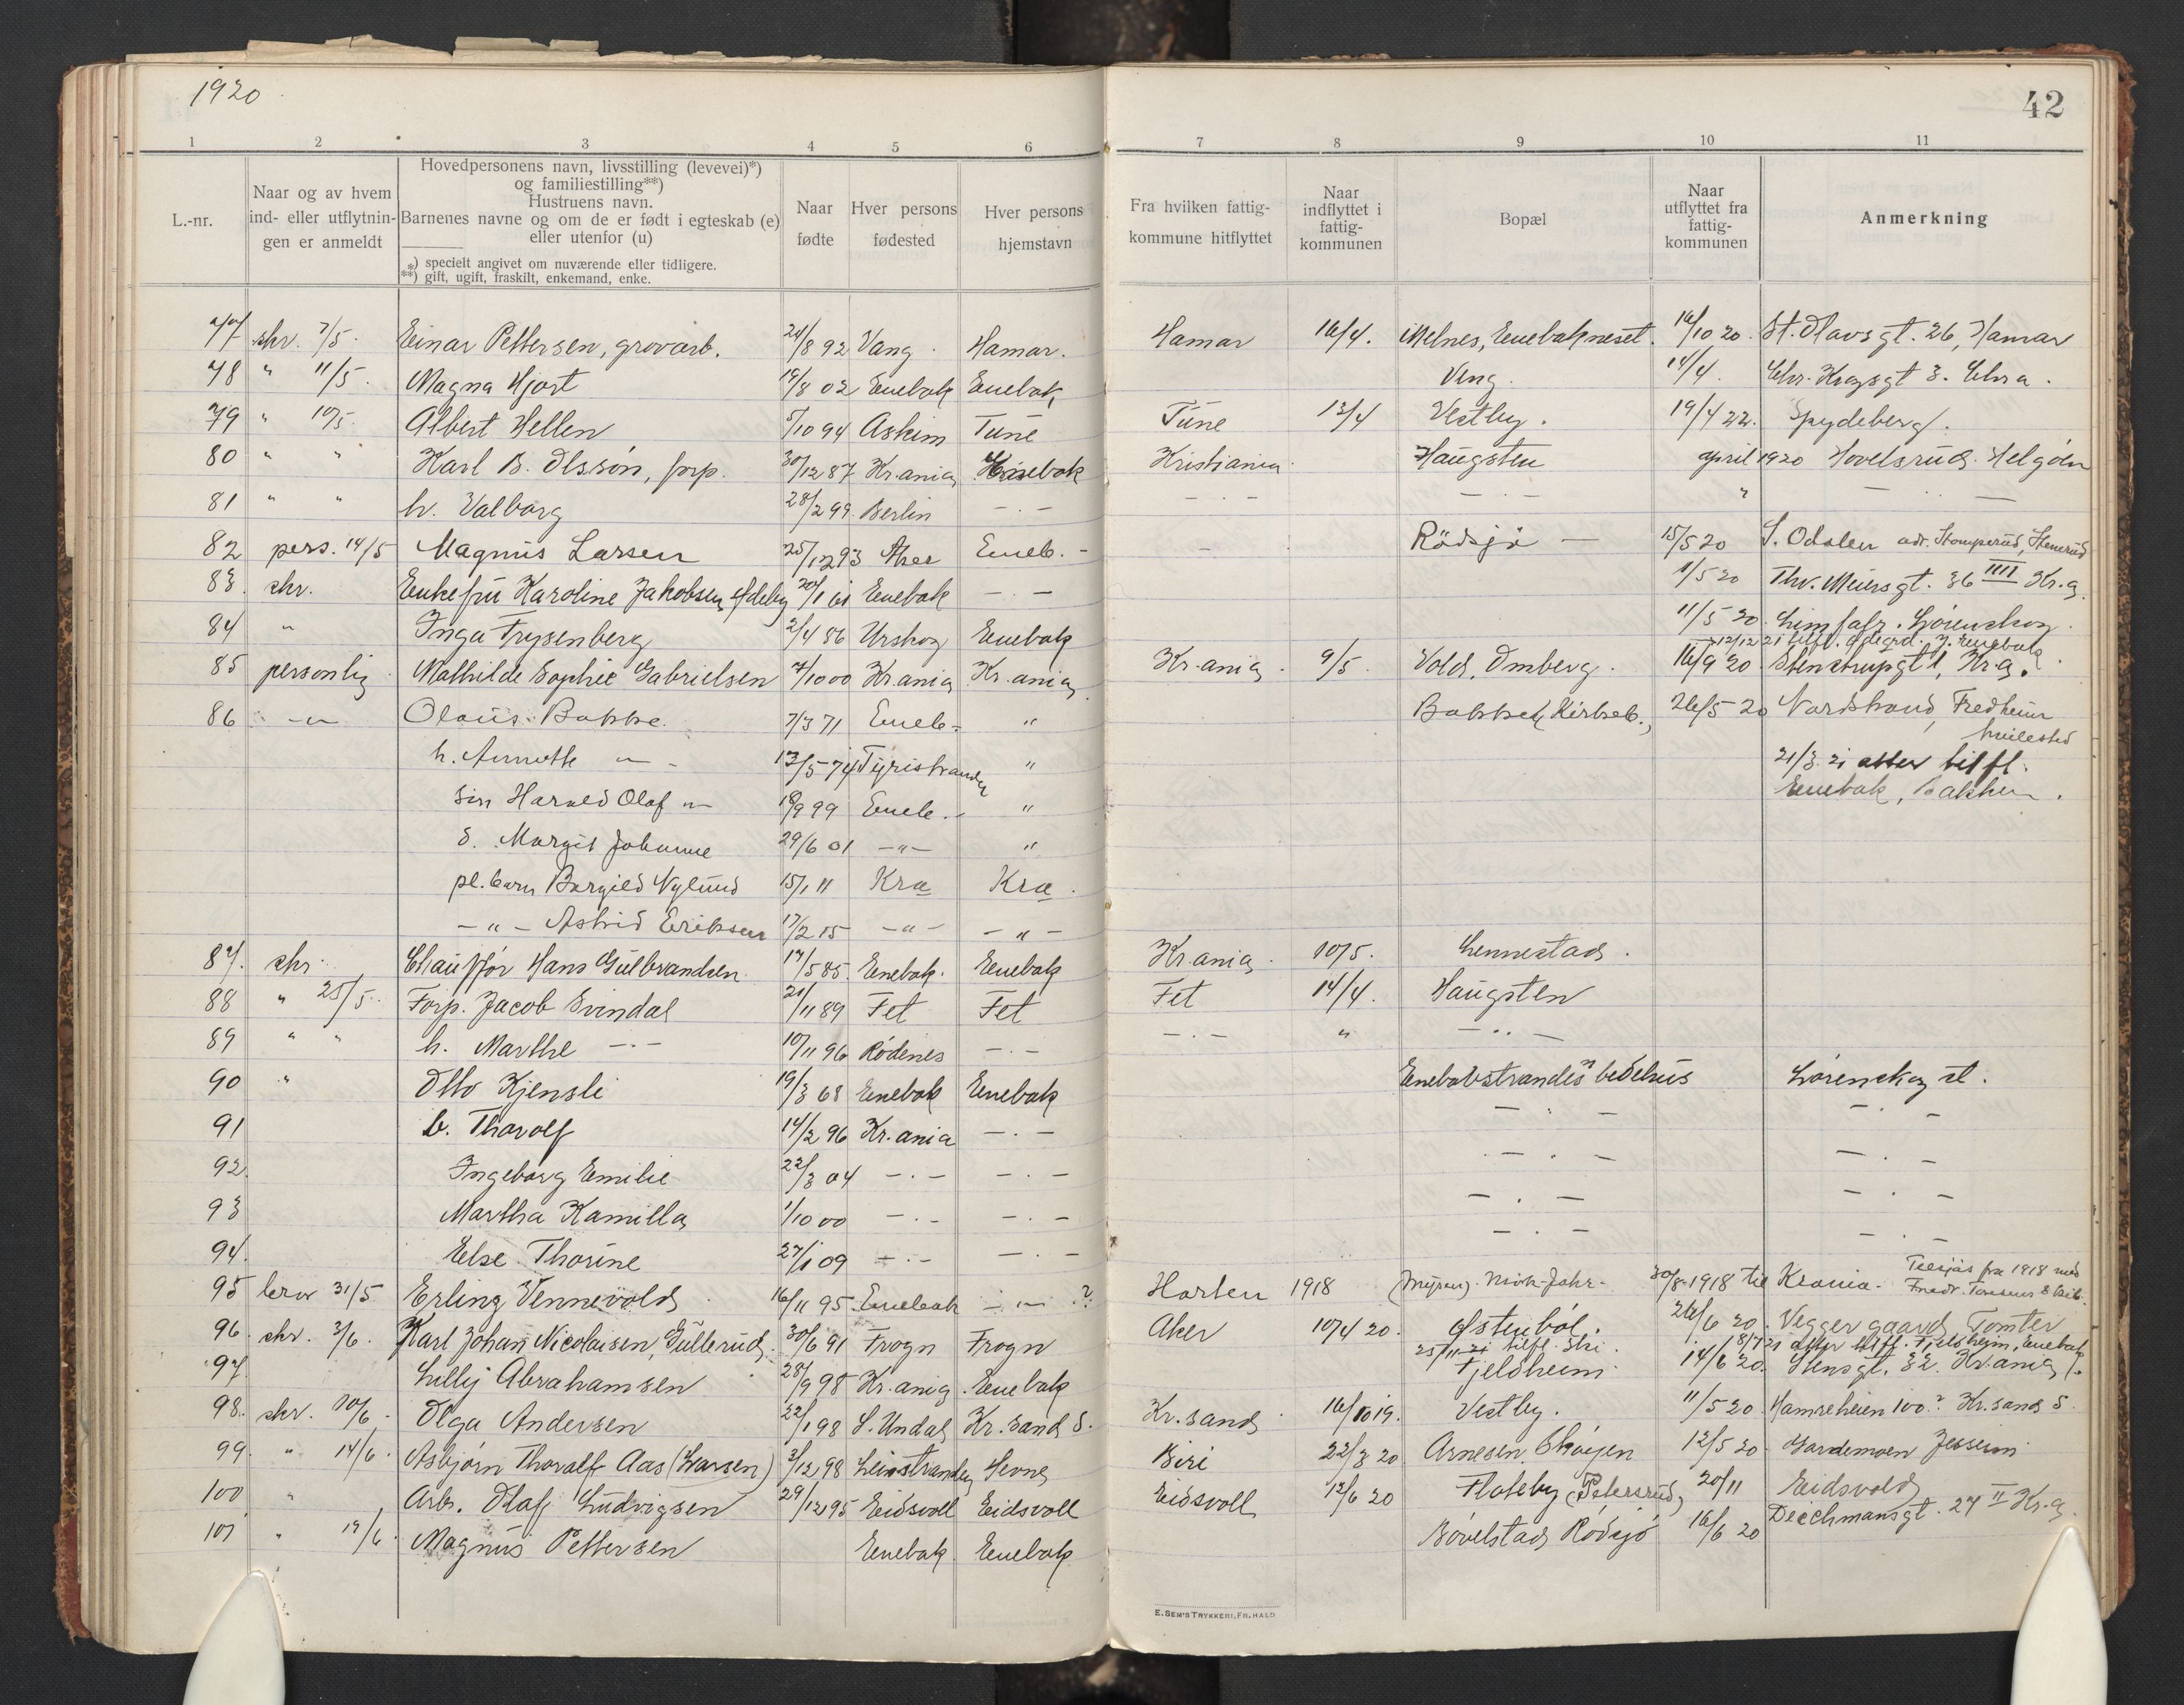 1920
42
1 2 3 4 5 6 7 8 9 10 11
L.-nr.
Naar og av hvem
ind- eller utflytnin-
gen er anmeldt
Hovedpersonens navn, livsstilling (levevei)*)
og familiestilling**)
Hustruens navn.
Barnenes navne og om de er født i egteskab (e)
eller utenfor (u)
*) specielt angivet om nuværende eller tidligere.
**) gift, ugift, fraskilt, enkemand, enke.
Naar
fødte
Hver persons
fødested
Hver persons
hjemstavn
Fra hvilken fattig-
kommune hitflyttet
Naar
indflyttet i
fattig-
kommunen
Bopæl
Naar
utflyttet fra
fattig-
kommunen
Anmerkning
77 skr. 7/5. Einar Pettersen, grovarb. 24/8 92 Vang Hamar. Hamar 16/4. Melnes, Enebakneset. 16/10 20. St. Olavsgt. 26, Hamar
78 " 11/5. Magna Hjort 19/8 02 Enebak Enebak Ving. 14/4. Chr. Krogsgt 3. Chra.
79 " 10/5. Albert Hellen 5/10 94 Askim Tune Tune 13/4 Vestby. 19/4 22. Spydeberg.
80 " " Karl B. Olssön, forp. 30/12 87 Kr.ania Enebak Kristiania Haugsten april 1920 Hovelsrud. Helgöen
81 " " h. Valborg 28/2 99. Berlin - . - - . - - . - " - -
82 pers. 14/5 Magnus Larsen 25/12 93 Aker Eneb. - - Rödsjö - 15/5 20 S. Odalen adr. Stomperud,
83. skr. Enkefru Karoline Jakobsen, 20/1 61 Enebak - . - 1/5 20 Thv. Meiersgt. 36 IIII Kr.a.
84 " Inga Frysenberg 2/4 86 Urskog Enebak 11/5 20. Limfabr. Lörenskog.
85 personlig Mathilde Sophie Gabrielsen 7/10 00 Kr.ania Kr.ania Kr.ania. 9/5. Vold, Omberg. 16/9 20 Stenstrupgt 1, Kr.a.
86 -"- Olaus Bakke. 7/3 71 Eneb- " Bakken, Kirkeb., 26/5 20 Nordstrand, Fredheim
hvilested
h. Annette -"- 13/5 74 Tyristranden " 21/3 21 atter tilfl.
sön Harald Olaf -"- 18/9 99 Eneb.- " Enebak, Bakken.
d. Margit Johanne 29/6 01 -"- "
pl. barn Borgild Nylund 15/1 11 Kra Kra.
-"- Astrid Eriksen 17/2 15 -"- -"-
87. skr. Chaufför Hans Gulbrandsen 17/5 85. Enebak. Enebak Kr.ania. 10/5. Lennestad.
88 " 25/5. Forp. Jacob Svindal 21/11 89 Fet Fet Fet 14/4. Haugsten
89 " " h. Marthe -.- 10/11 96 Rödenes - . - - . - " - .. -
90 " Otto Kjensli 19/3 68 Enebak Enebak Enebakstrandens bedehus Lörenskog st.
91 b. Thorolf 14/2 96 Kr.ania - . - - . - - . -
92. Ingeborg Emilie 22/3 04 - . - - . - - . - - . -
93 Martha Kamilla 1/10 00 - . - - . - - . - - . -
94. Else Thorine 27/1 09 - . - - . - - . - - . -
95 brev 31/5 Erling Vennevold 16/11 95. Enebak -"- ? Horten 1918 (Myren). 30/8-1918 til Krania. Tilsjás fra 1918 med
96. skr. 3/6. Karl Johan Nicolaisen, Gullerud. 30/6 91 Frogn Frogn Aker 10/4 20. Östenböl. 26/6 20. Vegger gaard, Tomter
25/11-21 tilfl. Ski. 8/7 21 atter tilfl. Fjeldheim, Enebak
97. Lilly Abrahamsen 28/9 98 Kr.ania. Enebak Fjeldheim. 14/6 20. Stensgt. 32. Kr.ania
98. skr. 10/6. Olga Andersen 22/1 98 S. Undal Kr.sand S. Kr.sand 16/10 19. Vestby. 11/5 20. Hamreheien 100.? Kr.sand S.
99. " 14/6. Asbjörn Thoralf Aas (Larsen) 3/12 98 Leinstranden Hevne Biri 22/3 20 Arnesen, Sköyen 12/5 20. Gardemoen Jessem
100 " Arb. Olaf Ludvigsen 29/12 95 Eidsvoll Eidsvoll Eidsvoll 12/6 20 Flateby (Petersrud) 20/11 Eidsvold
101 " 19/6. Magnus Pettersen Enebak Enebak Bövelstad, Rödsjö 16/6 20 Deichmansgt. 27 II Kr.a.
E. SEM'S TRYKKERI, FR.HALD